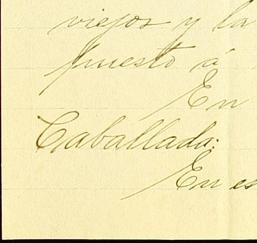 viejos y la
puesto á
En
Caballada;
En es